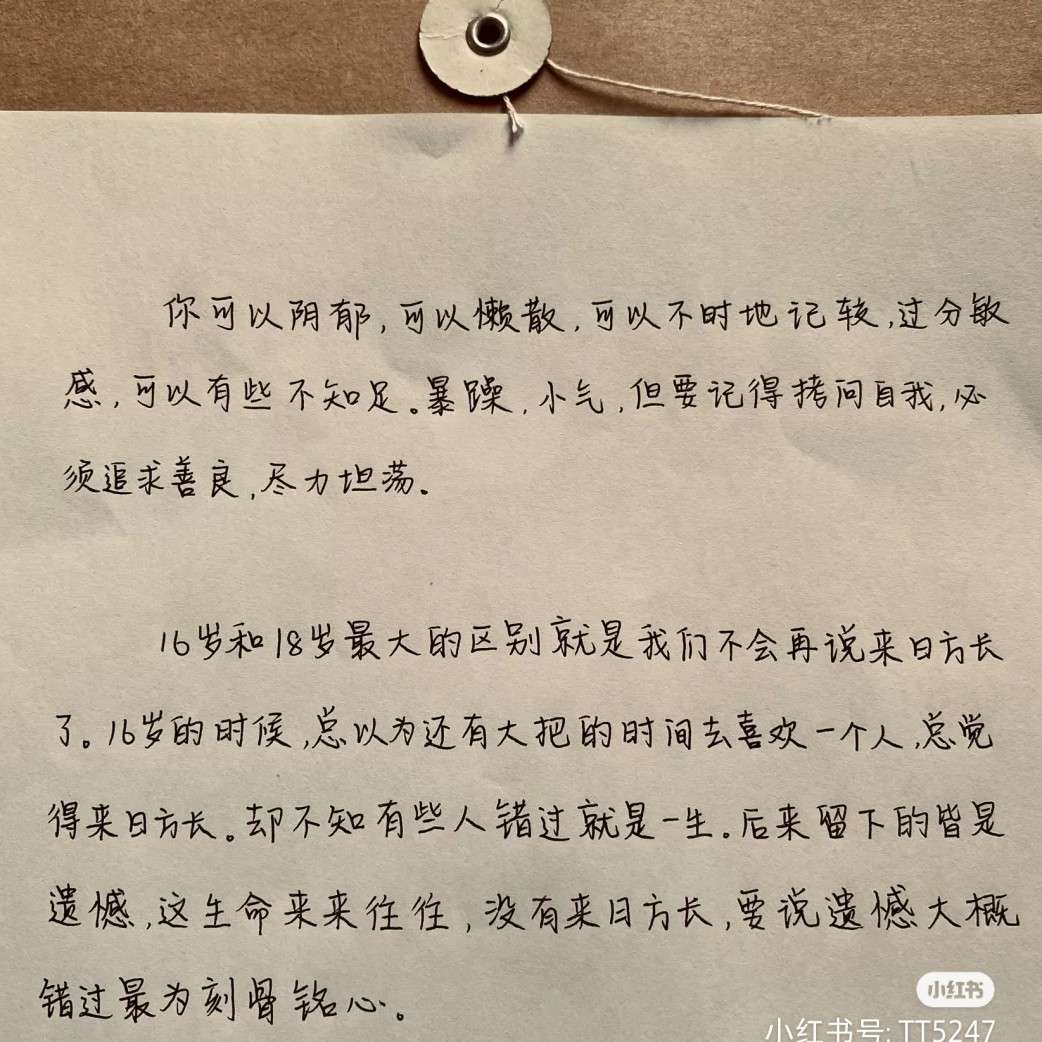 你可以阴郁,可以懒散,可以不时地记较,过分敏
感,可以有些不知足。暴躁,小气,但要记得拷问自我,必
须追求善良,尽力坦荡。
16岁和18岁最大的区别就是我们不会再说来日方长
了。16岁的时候,总以为还有大把的时间去喜欢一个人,总觉
得来日方长。却不知有些人错过就是一生。后来留下的皆是
遗憾,这生命来来往往,没有来日方长,要说遗憾大概
错过最为刻骨铭心。
小红书
小红书号: TT5247